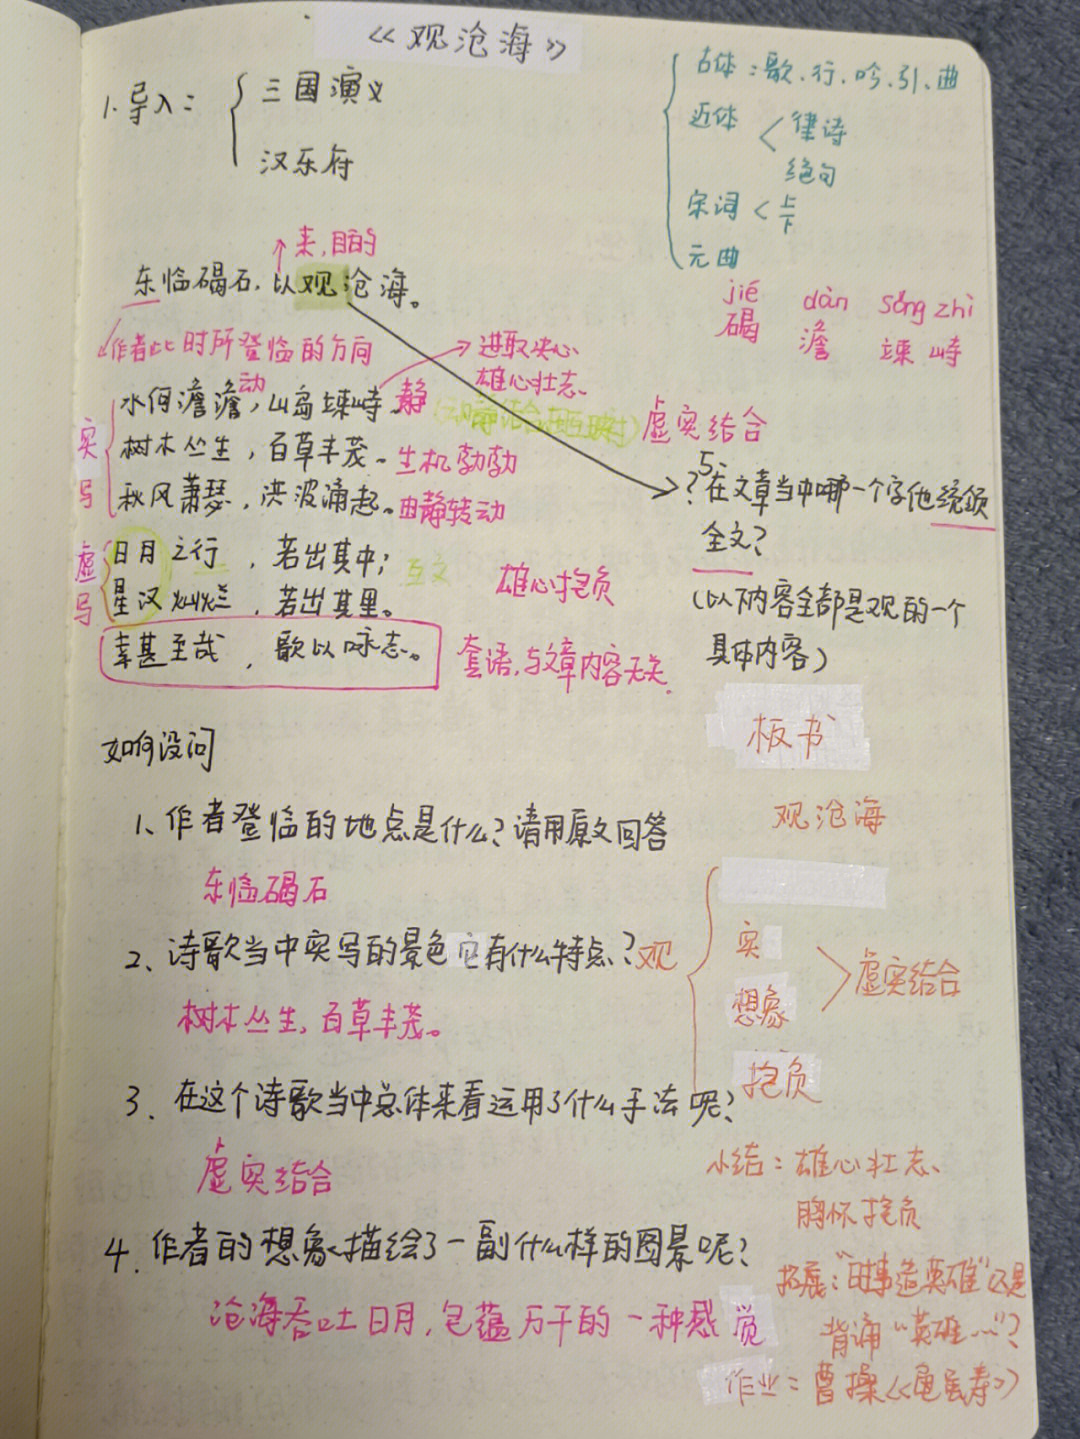 《观沧海》
1.导入：
三国演义
汉乐府
古体：歌、行、吟、引、曲
近体 < 律诗
绝句
宋词 < 上
下
元曲
jié dàn sǒng zhì
碣 澹 竦 峙
来,目的
东临碣石，以观沧海。
作者此时所登临的方向
进取决心
雄心壮志、
动
水何澹澹，山岛竦峙。静
(动静结合,相互映衬)
虚实结合
实写
树木丛生，百草丰茂。生机勃勃
秋风萧瑟，洪波涌起。由静转动
虚写
日月之行，若出其中；互文
星汉灿烂，若出其里。
雄心抱负
幸甚至哉，歌以咏志。
套语,与文章内容无关.
5.在文章当中哪一个字他统领
全文?
(以下内容全部是观的一个
具体内容)
如何设问
1、作者登临的地点是什么?请用原文回答
东临碣石
2、诗歌当中实写的景色它有什么特点?
树木丛生,百草丰茂。
3、在这个诗歌当中总体来看运用了什么手法呢?
虚实结合
4.作者的想象描绘了一副什么样的图景呢?
沧海吞吐日月,包蕴万千的一种感觉
板书
观沧海
观
实
想象
> 虚实结合
抱负
小结：雄心壮志、
胸怀抱负
拓展："时事造英雄"还是
背诵"英雄…"?
作业：曹操《龟虽寿》